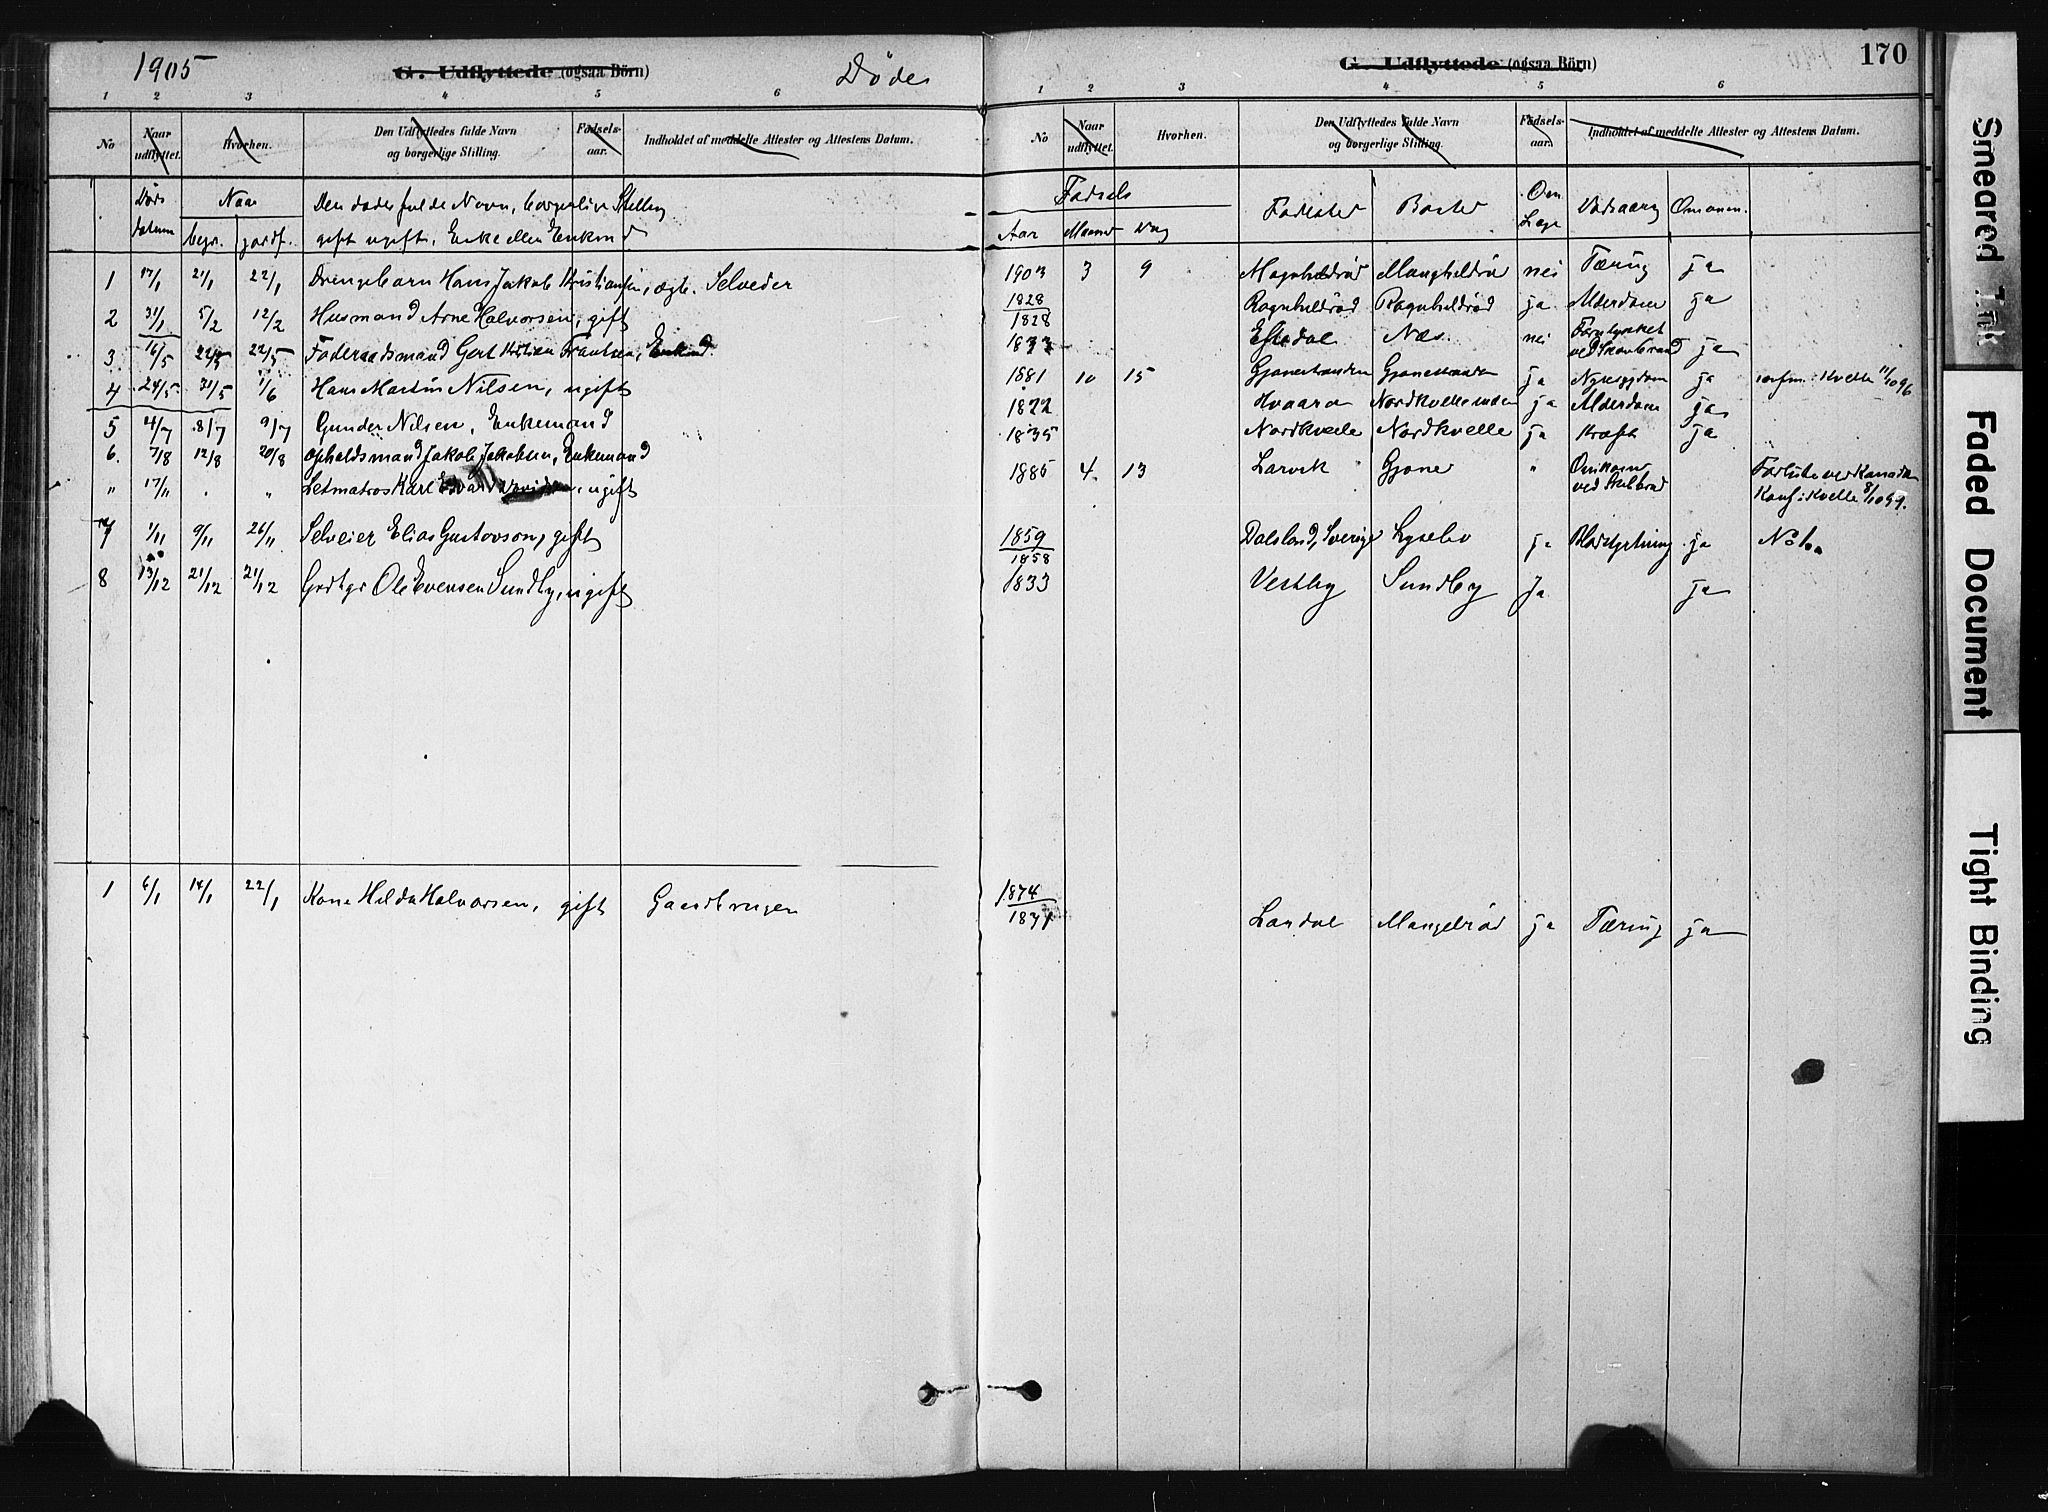 1905
G. Udflyttede (ogsaa Börn)
Döde
1 2 3 4 5 6
No
Naar udflyttet.
Hvorhen.
Den Udflyttedes fulde Navn og borgerlige Stilling.
Födsels-aar.
Indholdet af meddelte Attester og Attestens Datum.
Döds datum
Naar
begr. jordf.
Den dödes fulde Navn, borgerlige Stilling
gift ugift, Enke eller Enkemd
1 17/1 21/1 22/1 Drengebarn Hans Jakob Kristiansen, ægte. Selveder
2 31/1 5/2 12/2 Husmand Arne Halvorsen, gift
3 16/5 22/5 22/5 Föderaadsmand Gert Kristian Frantsen, Enkmd.
4 24/5 31/5 1/6 Hans Martin Nilsen, ugift
5 4/7 8/7 9/7 Gunder Nilsen, Enkemand
6. 7/8 12/8 20/8 Opholdsmand Jakob Jakobsen, Enkemand
" 17/11 " " Letmatros Karl Edvard, ugift
7 1/11 9/11 26/11 Selveier Elias Gustavson, gift
8 13/12 21/12 21/12 Grdbgr Ole Evensen Sundby, ugift
1 6/1 14/1 22/1 Kone Hilda Halvorsen, gift Gaardbruger
170
G. Udflyttede (ogsaa Börn)
1 2 3 4 5 6
No
Naar udflyttet.
Hvorhen.
Den Udflyttedes fulde Navn og borgerlige Stilling.
Födsels-aar.
Indholdet af meddelte Attester og Attestens Datum.
Födsels
Aar Maaned Dag
Födested Bosted Om Læge Dödsaarsag Om anm.
1903 3 9 Magnhildröd Mangheldrö nei Tæring ja
1828
1828 Ragnhildröd Ragnhildröd ja Alderdom ja
1833 Eftedal Næs nei ja
1881 10 15 Gjonestranden Gjonestranden ja Nyresygdom ja konfm. i Kvelle 11/10 96
1822 Hvaara Nordkvelle ja Alderdom ja
1835 Nordkvelle Nordkvelle ja Kræft ja
1885 4 13 Larvik Gjone " Omkom ved Skibbrud Konf i Kvelle 8/10 99.
1859
1858 Dalsland, Sverige Lysebo ja ja
1833 Vestby Sundby Ja ja
1874
1831 Landal Mangelröd ja Tæring ja
Smeared Ink
Faded Document
Tight Binding